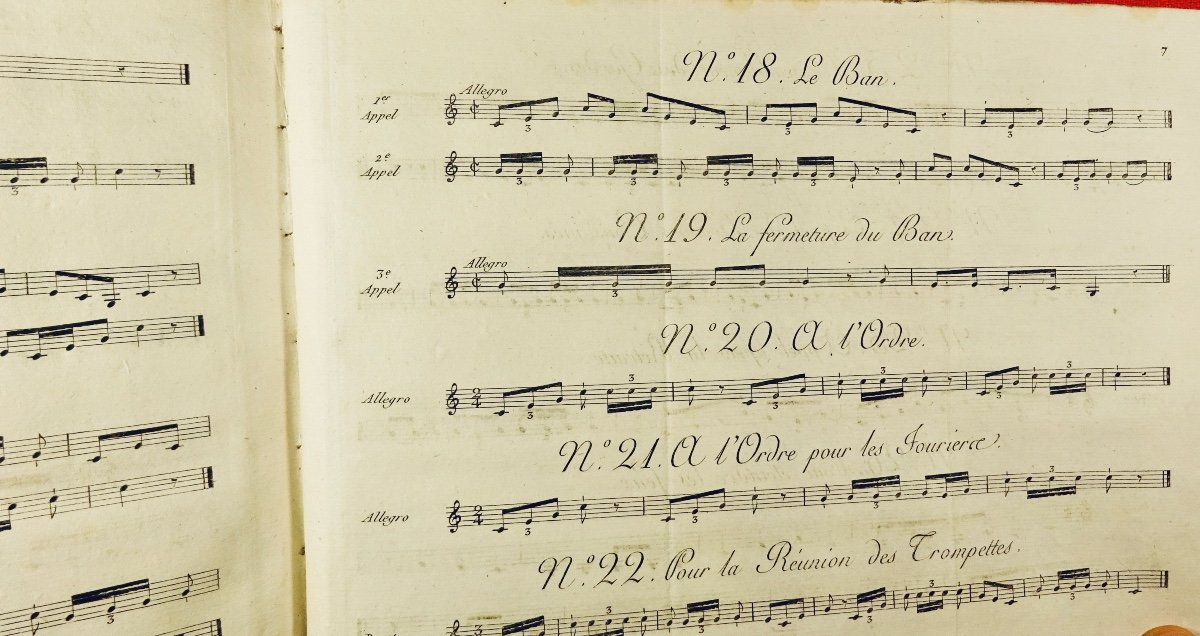 7
N.º 18. Le Ban.
Allegro
1er Appel
3
3
3
2e Appel
3
3
3
3
3
N.º 19. La fermeture du Ban.
Allegro
3e Appel
3
N.º 20. A l'Ordre.
Allegro
2/4
3
3
3
3
3
3
N.º 21. A l'Ordre pour les Fourierœ.
Allegro
2/4
3
3
3
3
N.º 22. Pour la Réunion des Trompettes.